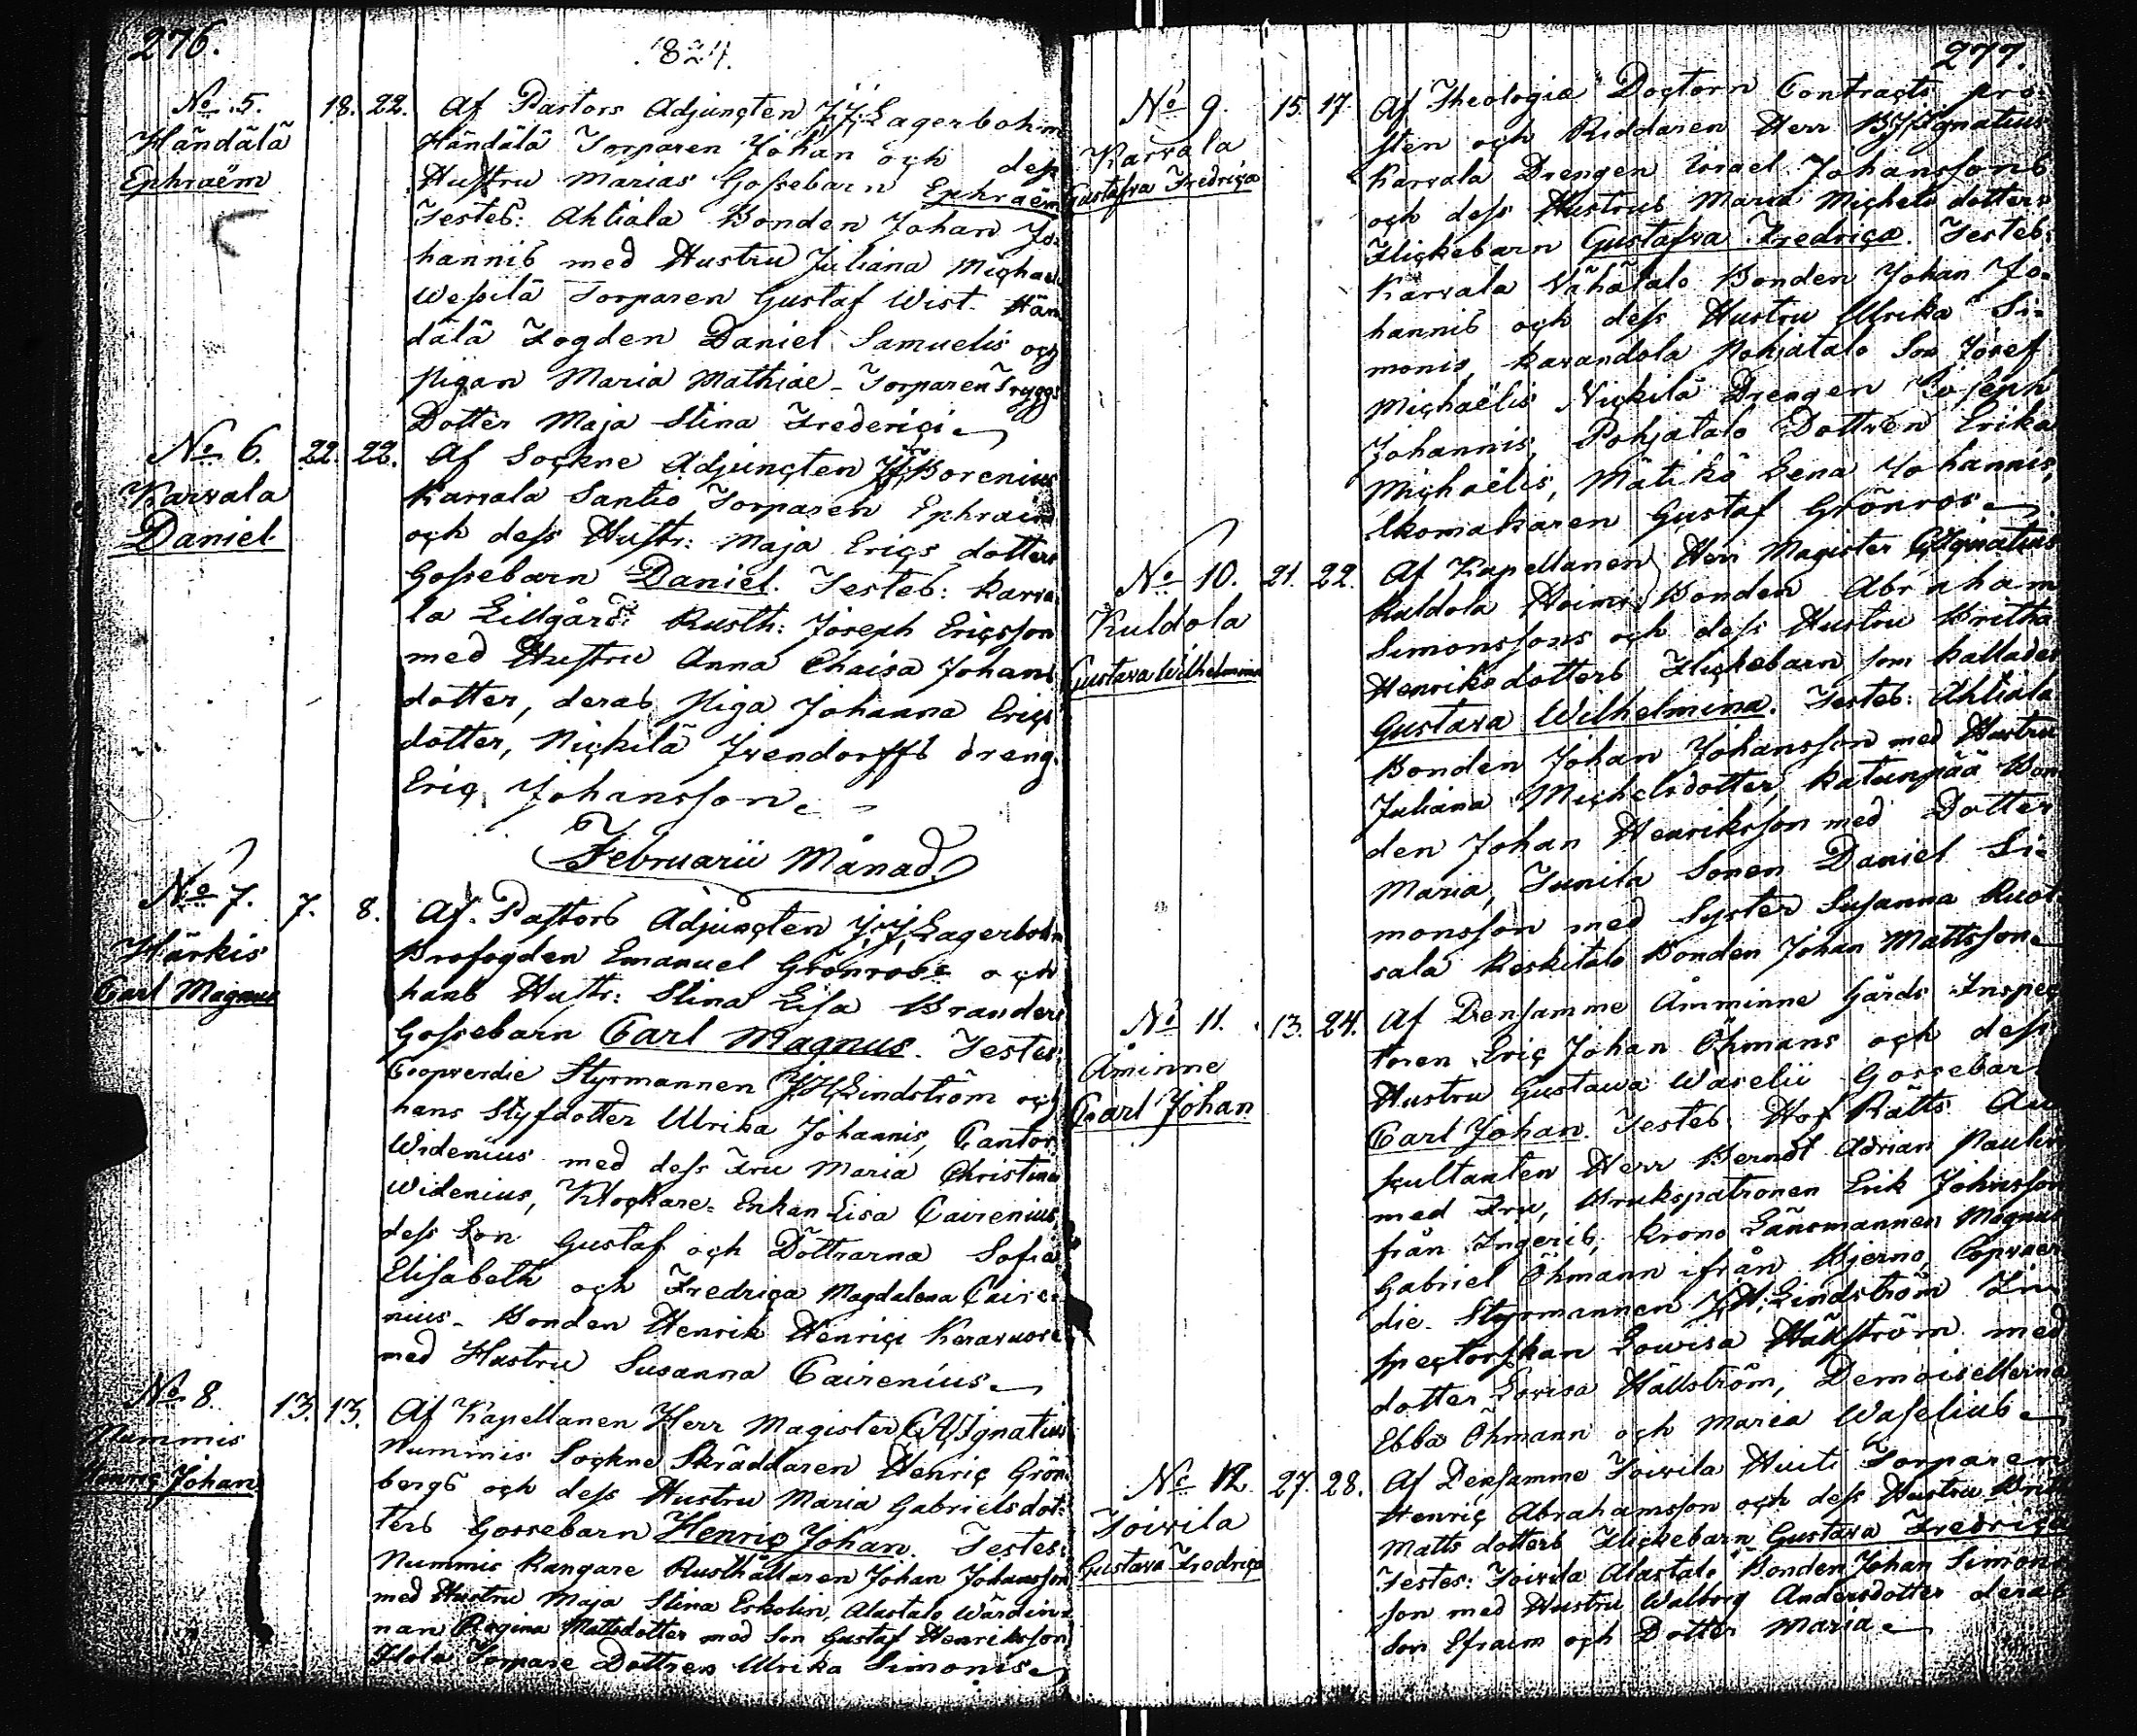 276.
1824.
No. 5. 18. 22. Af Pastors Adjuncten J.J. Lagerbohm
Händälä
Ephraëm
Händälä Torparen Johan och dess
Hustru Marias Gossebarn Ephraëm
Testes: Ahtiala Bonden Johan Jo-
hannis med Hustru Juliana Michael
Wessilä Torparen Gustaf Wist. Hän
dälä Fogden Daniel Samuelis och
Pigan Maria Mathiae - Torparen Tryggs
Dotter Maja Stina Frederici
No 6. 22. 22. Af Sockne Adjuncten Borenius
Karvala
Daniel
Karvala Santio Torparen Ephraim
och dess Hustr: Maja Erics dotters
Gossebarn Daniel. Testes: Karva-
la Lillgård: Rusth: Joseph Ericsson
med Hustru Anna Chaisa Johans
dotter, deras Piga Johanna Erics
dotter, Nickilä Ivendorffs dreng
Eric Johansson
Februarii Månad
No 7. 7. 8. Af Pastors Adjuncten J.J. Lagerbohm
Härkis
Carl Magnus
Brofogden Emanuel Grönroos och
hans Hustr: Stina Lisa Branders
Gossebarn Carl Magnus. Testes:
Coopverdie Styrmannen J.H. Lindström och
hans Styfdotter Ulrika Johannis, Cantor
Widenius med dess Fru Maria Christina
Widenius, Klockare-Enkan Lisa Cairenius,
dess Son Gustaf och Döttrarna Sofia
Elisabeth och Fredrica Magdalena Caire-
nius - Bonden Henrik Henrici Keravuore
med Hustru Susanna Cairenius
No 8. 13. 13. Af Kapellanen Herr Magister C.A. Ignatius
Nummis
Henric Johan
Nummis Sockne Skräddaren Henric Grön-
bergs och dess Hustru Maria Gabrielsdot-
ters Gossebarn Henric Johan. Testes:
Nummis Kangare Rusthållaren Johan Johansson
med Hustru Maja Stina Eskolin, Alastalo Wärdin-
nan Regina Mattsdotter med Son Gustaf Henriksson,
Ilola Torpare Dottren Ulrika Simonis
277.
No 9. 15. 17. Af Theologiæ Doctorn Contracts pro-
Karvala
Gustafva Fredrica
sten och Riddaren Herr B.J. Ignatius
Karvala Drengen Israel Johanssons
och dess Hustrus Maria Michels dotters
Flickebarn Gustafva Fredrica. Testes:
Karvala Vähätalo Bonden Johan Jo-
hannis och dess Hustru Ulrika Si-
monis, Karandola Pohjatalo Son Josef
Michaëlis Nickilä Drengen Joseph
Johannis, Pohjatalo Dottren Erika
Michaëlis, Mätikö Lena Johannis,
Skomakaren Gustaf Grönros
No 10. 21. 22. Af Kapellanen Herr Magister C.A. Ignatius
Kuldola
Gustava Wilhelmina
Kuldola Heimo Bonden Abraham
Simonssons och dess Hustru Britha
Henriksdotters Flickebarn som kallades
Gustava Wilhelmina. Testes: Ahtiala
Bonden Johan Johansson med Hustru
Juliana Michelsdotter, Katunpää Bon
den Johan Henriksson med Dotter
Maria, Junila Sonen Daniel Si-
monsson med Syster Susanna Ruot-
sala Keskitalo Bonden Johan Mattsson
No 11. 13. 24. Af Densamme Åmminne Gårds Inspec
Åminne
Carl Johan
toren Eric Johan Öhmans och dess
Hustru Gustawa Waselii Gossebar
Carl Johan. Testes. Hof Rätts Au
scultanten Herr Berndt Adrian Paulin
med Fru, Brukspatronen Erik Johnsson
från Ingeris, Krono Länsmannen Magnus
Gabriel Öhmann ifrån Bjerno, Copvaer
die Styrmannen J.H. Lindström In
spectorskan Lowisa Hällström med
dotter Lovisa Hällström, Demoisellerna
Ebba Öhmann och Maria Waselius
No 12. 27. 28. Af Densamme Toivila Huiti Torparen
Toivila
Gustava Fredrica
Henric Abrahamsson och dess Hustru Brit
Matts dotters Flickebarn Gustava Fredrica
Testes: Toivila Alastalo Bonden Johan Simons-
son med Hustru Walborg Andersdotter deras
Son Efraim och Dotter Maria